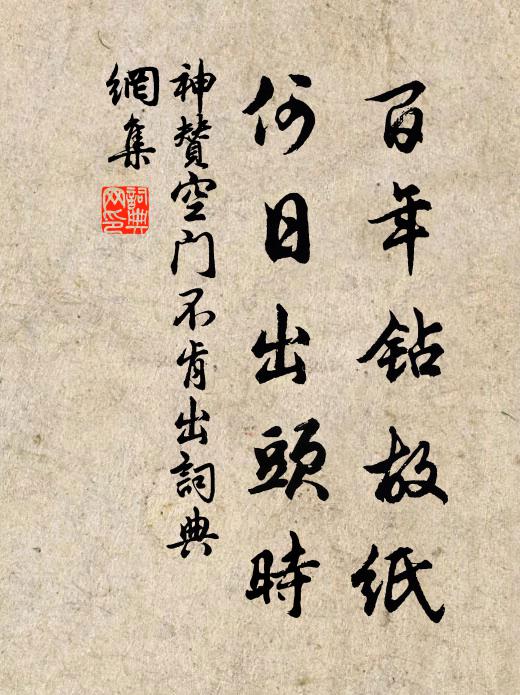 百年钻故纸
何日出頭時
神贊空门不肯出詞典
網集
詞典
网印